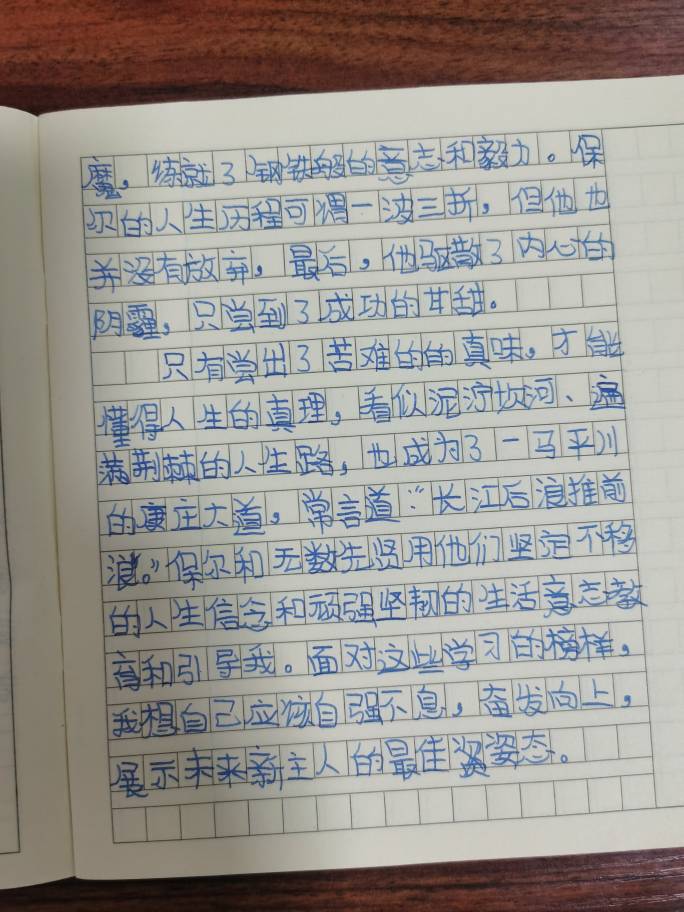 魔，练就了钢铁般的意志和毅力。保
尔的人生历程可谓一波三折，但他也
并没有放弃，最后，他驱散了内心的
阴霾，只尝到了成功的甘甜。
只有尝出了苦难的的真味，才能
懂得人生的真理，看似泥泞坎河、遍
满荆棘的人生路，也成为了一马平川
的康庄大道，常言道：“长江后浪推前
浪。”保尔和无数先贤用他们坚定不移
的人生信念和顽强坚韧的生活意志教
育和引导我。面对这些学习的榜样，
我想自己应该自强不息，奋发向上，
展示未来新主人的最佳姿态。